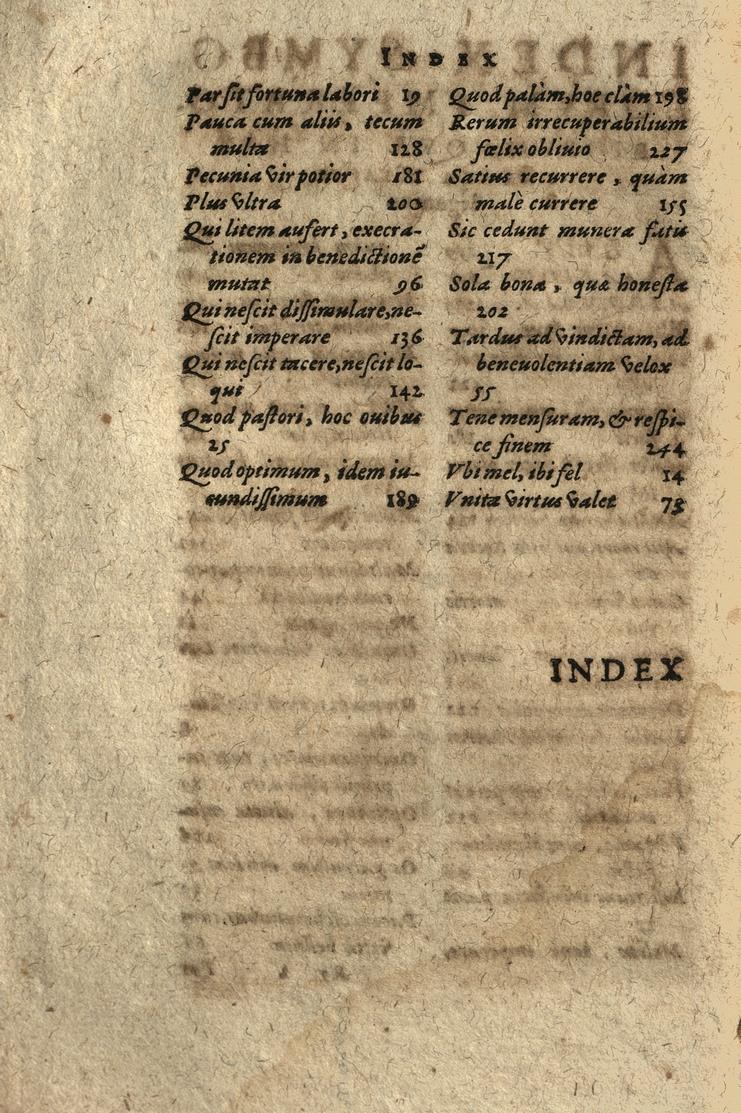 INDEX
Par sit fortuna labori 19
Pauca cum aliis, tecum
multa 128
Pecunia vir potior 181
Plus vltra 200
Qui litem aufert, execra-
tionem in benedictionē
mutat 96
Qui nescit dissimulare, ne-
scit imperare 136
Qui nescit tacere, nescit lo-
qui 142
Quod pastori, hoc ouibus
25
Quod optimum, idem iu-
cundissimum 189
Quod palàm, hoc clàm 198
Rerum irrecuperabilium
fœlix obliuio 227
Satius recurrere, quàm
malè currere 155
Sic cedunt munera fatis
217
Sola bona, quæ honesta
202
Tardus ad vindictam, ad
beneuolentiam velox
55
Tene mensuram, & respi-
ce finem 244
Vbi mel, ibi fel 14
Vnita virtus valet 73
INDEX